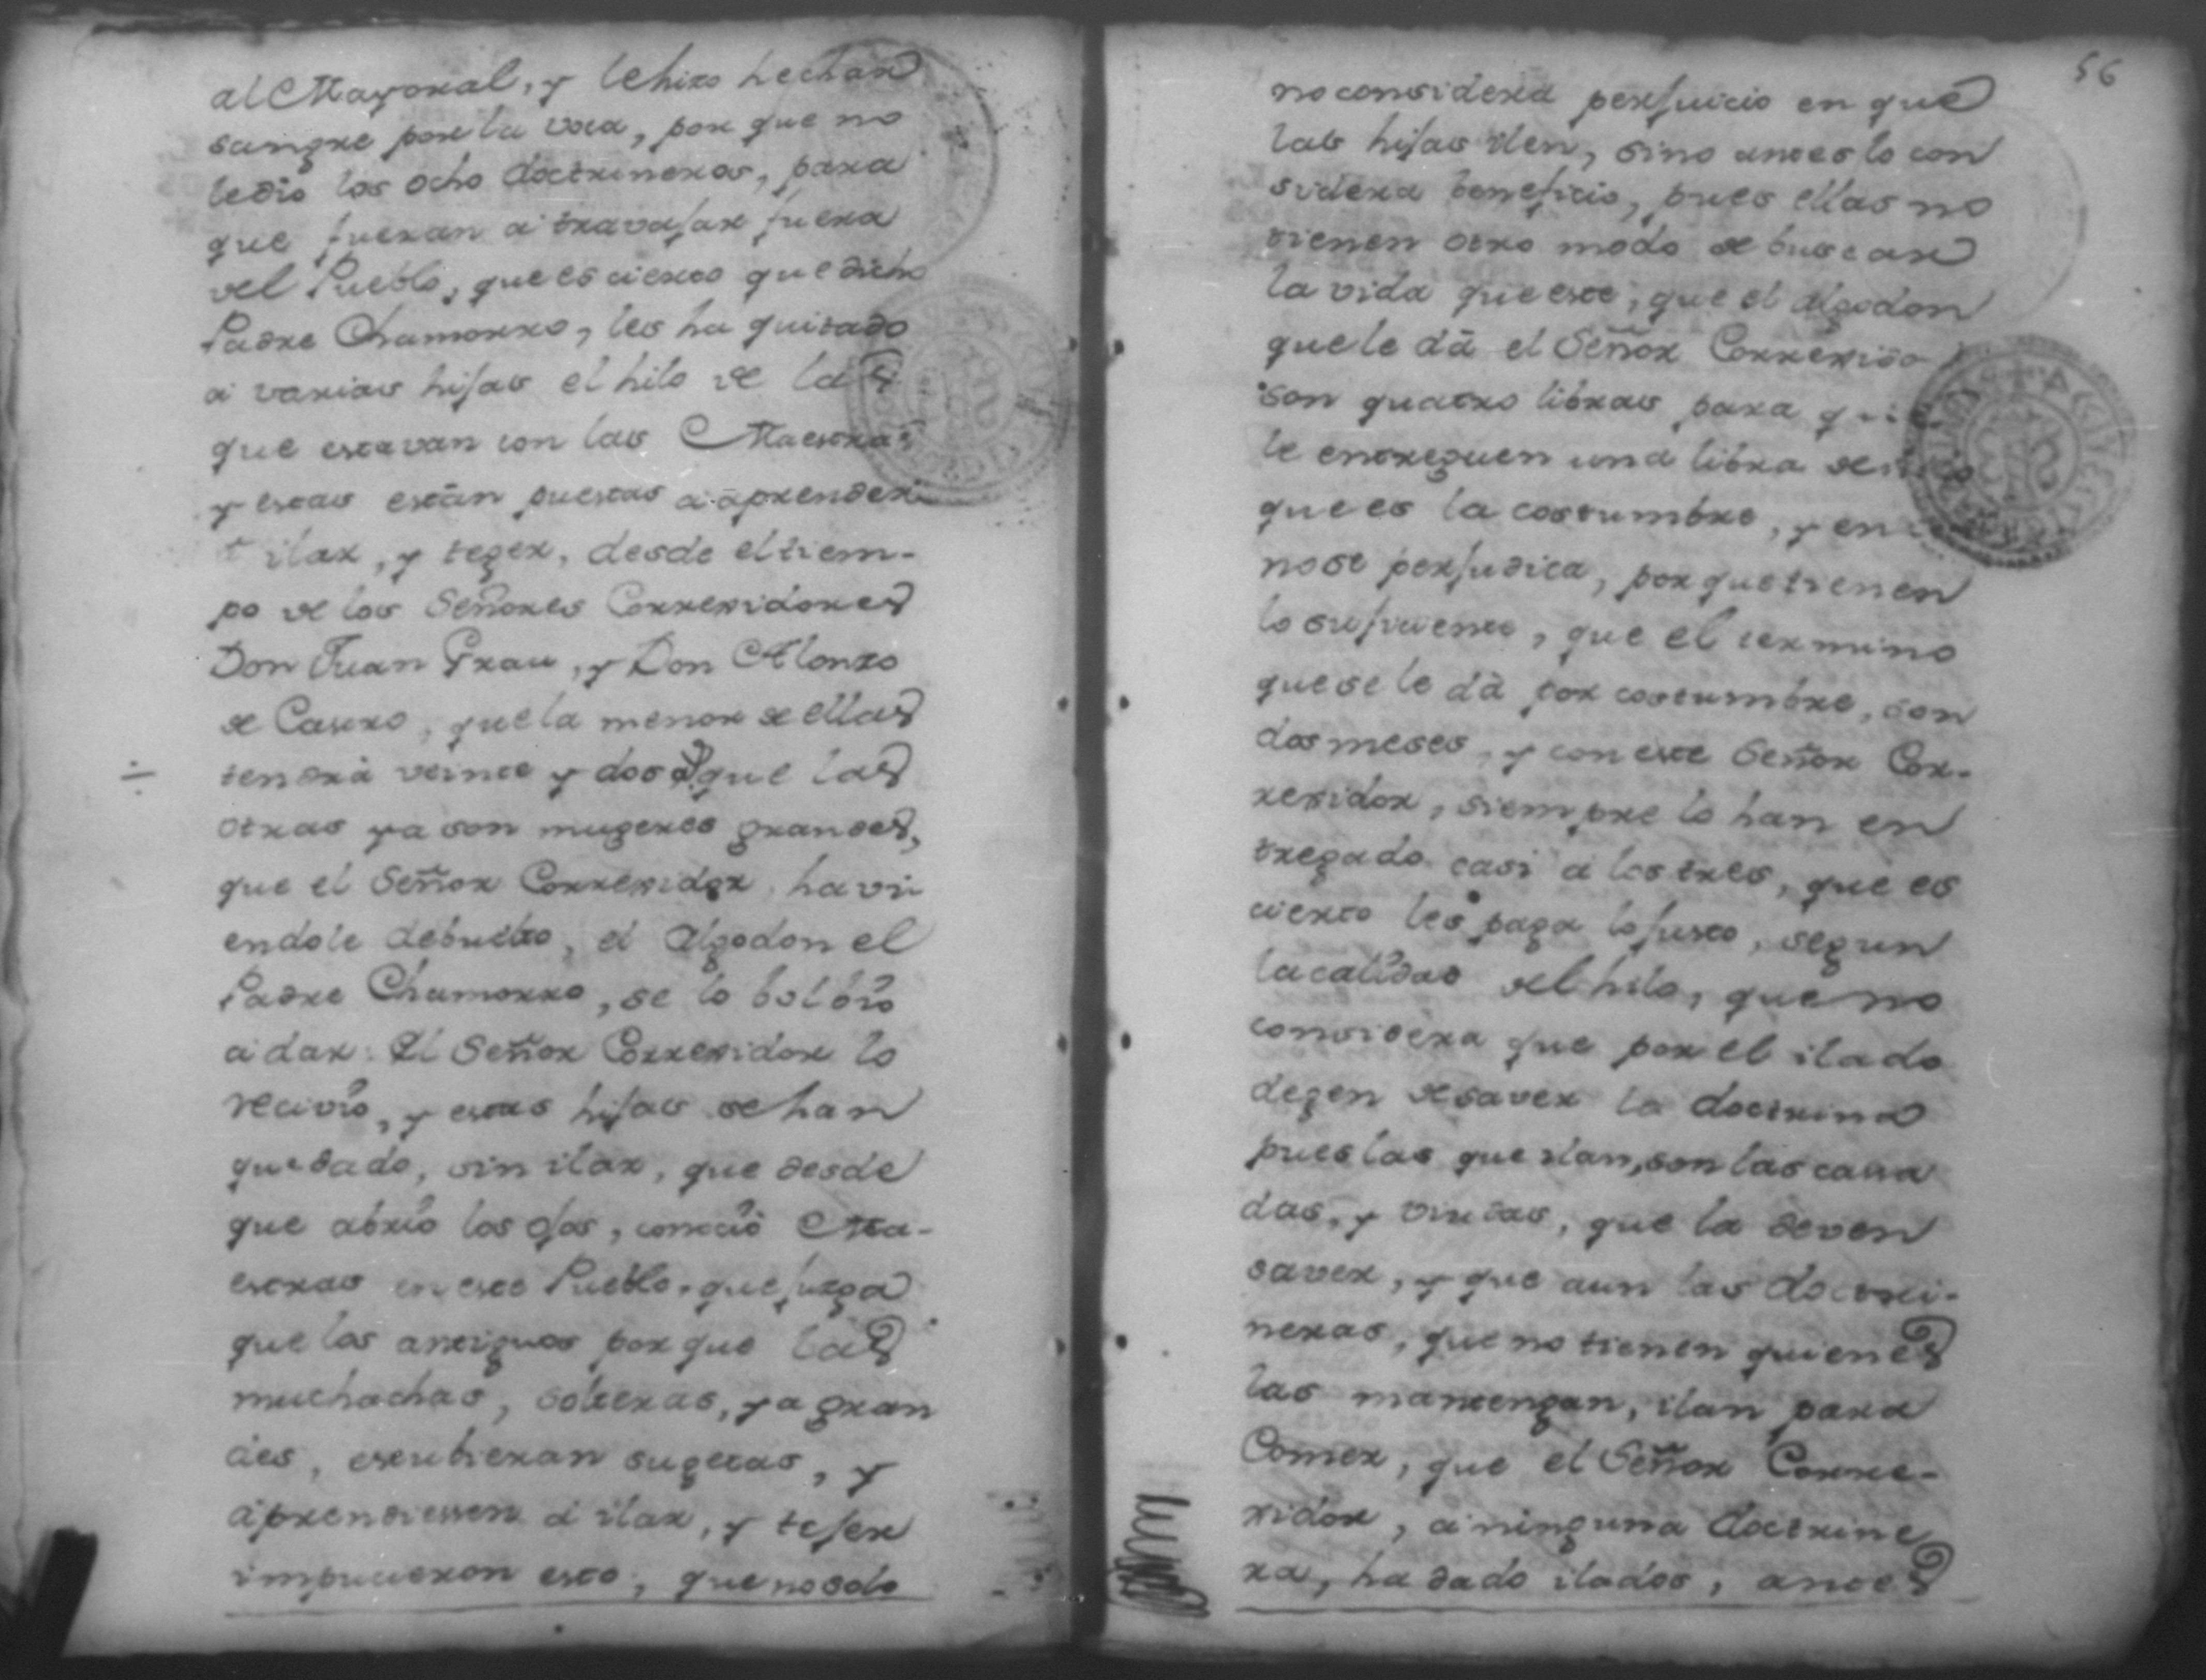 al Mayoral, y le hizo hechar
sangre por la voca, por que no
le dio los ocho doctrineros, para
que fueran a travajar fuera
del Pueblo, que es cierto que dicho
Padre Chamorro, les ha quitado
a varias hijas el hilo de las
que estavan con las Maestras
y estas están puestas a aprender
ilar, y teger, desde el tiem-
po de los Señores Correxidores
Don Juan Grau, y Don Alonzo
de Castro, que la menor de ellas
tendrà veinte y dos que las
otras ya son mugeres grandes,
que el Señor Correxidor, havi
endole debuelto, el Algodon el
Padre Chamorro, se lo bolbió
a dar: El Señor Correxidor lo
recivió, y estas hijas se han
quedado, sin ilar, que desde
que abrió los ojos, conoció Ma-
estras en este Pueblo, que juzga
que los antiguos por que las
muchachas, solteras, ya gran
des, estubieran sugetas, y
aprendiessen a ilar, y tejer
impucieron esto, que no solo
56
no considera perjuicio en que
las hijas ilen, sino antes lo con
sidera beneficio, pues ellas no
tienen otro modo de buscar
la vida que este, que el algodon
que le dà el Señor Correxido
son quatro libras para que
le entreguen una libra de
que es la costumbre, y en
no se perjudica, por que tienen
lo suficiente, que el termino
que se le dà por costumbre, son
dos meses, y con este Señor Cor-
rexidor, siempre lo han en
tregado casi a los tres, que es
cierto les paga lo justo, segun
la calidad del hilo, que no
considera que por el ilado
degen de saver la doctrina
pues las que ilan, son las casa
das, y viudas, que la deven
saver, y que aun las doctri-
neras, que no tienen quienes
las mantengan, ilan para
Comer, que el Señor Corre-
xidor, a ninguna doctrine
ra, ha dado ilados, antes